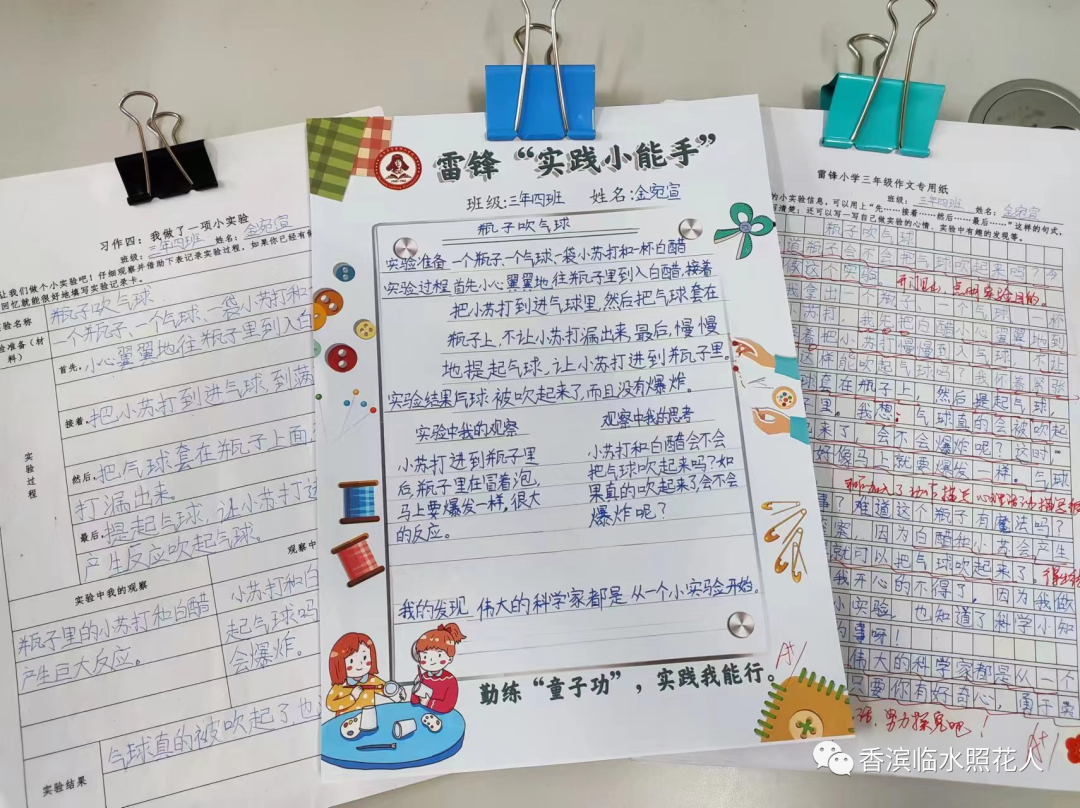 习作四：我做了一项小实验
班级：三年四班 姓名：金宛宣
让我们做个小实验吧！仔细观察并借助下表记录实验过程，如果你已经有
回忆就能很好地填写实验记录卡。
实验名称 瓶子吹气球
一个瓶子、一个气球、一袋小苏打和
首先，小心翼翼地往瓶子里到入白
接着，把小苏打到进气球，到满
实验过程
然后，把气球套在瓶子上面，
打漏出来。
最后，提起气球，让小苏打进
产生反应吹起气球。
实验中我的观察
观察中
瓶子里的小苏打和白醋
产生巨大反应。
小苏打和白
起气球吗
会爆炸。
实验结果
气球真的被吹起了，也
雷锋“实践小能手”
班级：三年四班 姓名：金宛宣
瓶子吹气球
实验准备 一个瓶子、一个气球、一袋小苏打和一杯白醋
实验过程 首先小心翼翼地往瓶子里到入白醋，接着
把小苏打到进气球里，然后把气球套在
瓶子上，不让小苏打漏出来，最后，慢慢
地提起气球，让小苏打进到瓶子里。
实验结果 气球被吹起来了，而且没有爆炸。
实验中我的观察
小苏打进到瓶子里
后，瓶子里在冒着泡，
马上要爆发一样。很大
的反应。
观察中我的思考
小苏打和白醋会不会
把气球吹起来吗？如
果真的吹起来了，会不会
爆炸呢？
我的发现 伟大的科学家都是从一个小实验开始。
勤练“童子功”，实践我能行。
A+
雷锋小学三年级作文专用纸
班级：三年四班 姓名：金宛宣
的小实验信息，可以用上“先……接着……然后……最后……”这样的句式，
写清楚；还可以写一写自己做实验的心情、实验中有趣的发现等。
瓶子吹气球
做这个实验。
开门见山，点明实验目的。
拿出一个瓶子、一个气球
苏打，我先把白醋小心翼翼地到
着把小苏打慢慢到入气球
这样能吹起气球吗？我怀着紧张
球套在瓶子上，然后提起气球，
里。我想：气球真的会被吹起
来了，会不会爆炸呢？这时
好像马上就要爆发一样。气球
事？难道这个瓶子有魔法吗？
案，因为白醋和小苏会产生
就可以把气球吹起来了。
我开心的不得了，因为我做
小实验，也知道了科学小知
事呀！
伟大的科学家都是从一个
只要你有好奇心，勇于
努力探究吧！
A+
香滨临水照花人